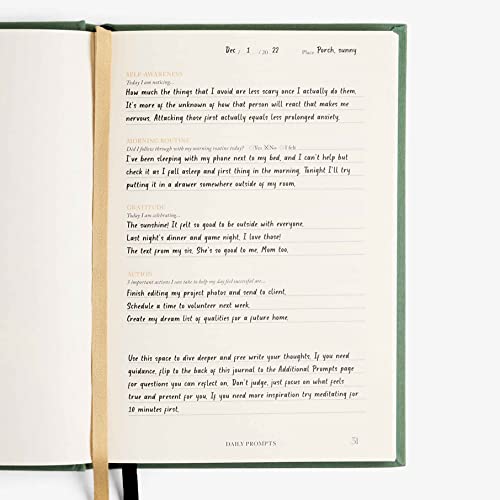 Dec / 1 / 20 22 Place Porch, sunny
SELF-AWARENESS
Today I am noticing...
How much the things that I avoid are less scary once I actually do them.
It's more of the unknown of how that person will react that makes me
nervous. Attacking those first actually equals less prolonged anxiety.
MORNING ROUTINE
Did I follow through with my morning routine today? Yes XNo I felt
I've been sleeping with my phone next to my bed, and I can't help but
check it as I fall asleep and first thing in the morning. Tonight I'll try
putting it in a drawer somewhere outside of my room.
GRATITUDE
Today I am celebrating...
The sunshine! It felt so good to be outside with everyone.
Last night's dinner and game night. I love those!
The text from my sis. She's so good to me. Mom too.
ACTION
3 important actions I can take to help my day feel successful are...
Finish editing my project photos and send to client.
Schedule a time to volunteer next week.
Create my dream list of qualities for a future home.
Use this space to dive deeper and free write your thoughts. If you need
guidance, flip to the back of this journal to the Additional Prompts page
for questions you can reflect on. Don't judge, just focus on what feels
true and present for you. If you need more inspiration try meditating for
10 minutes first.
DAILY PROMPTS 51